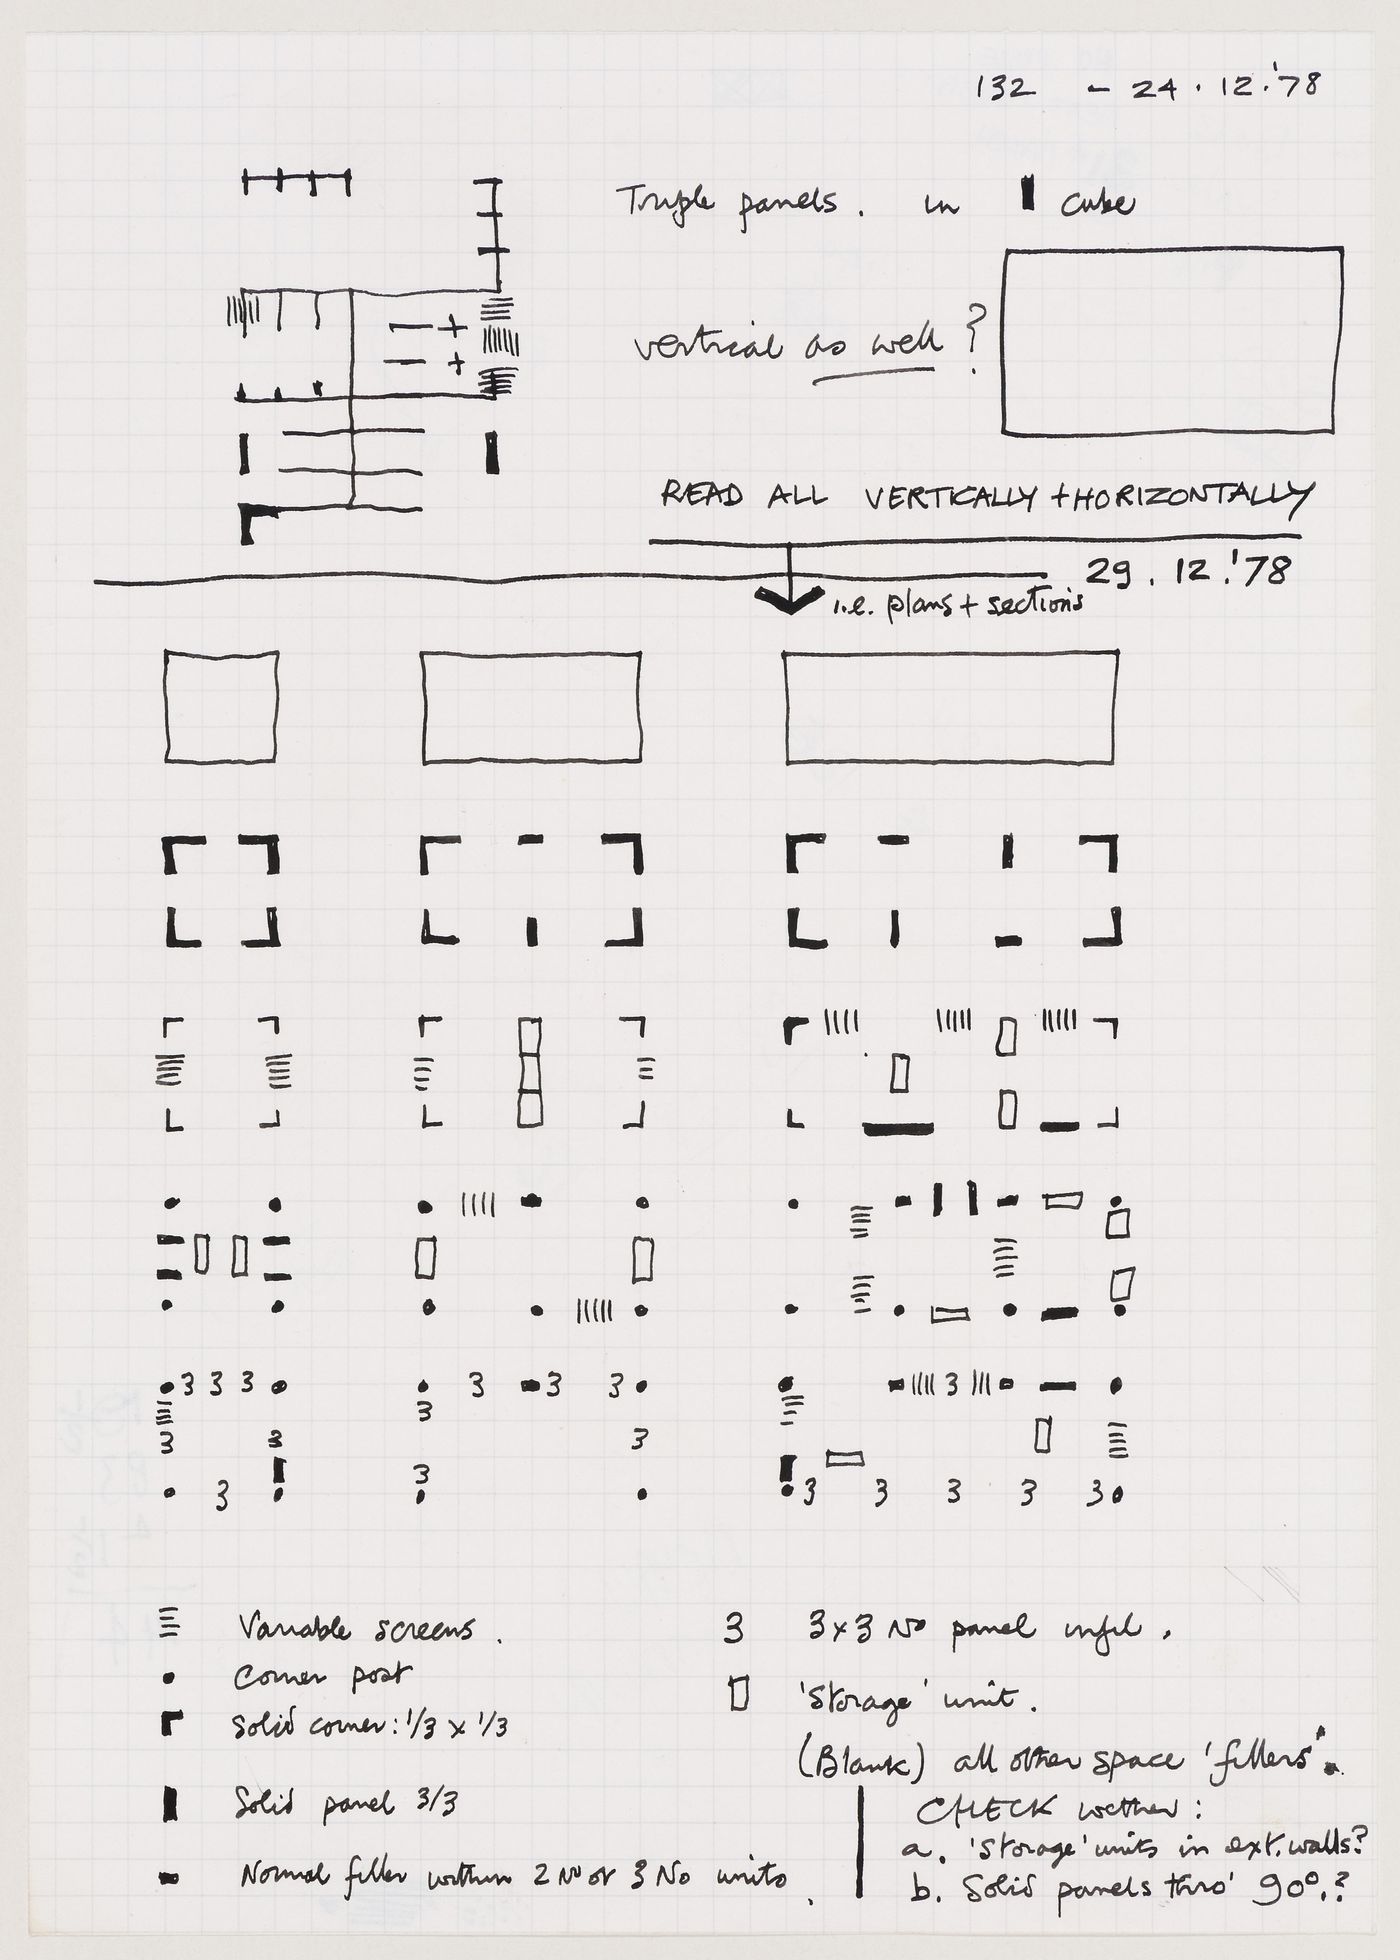 132 - 24 . 12.'78
Triple panels . in cube
vertical as well ?
READ ALL VERTICALLY + HORIZONTALLY
29 . 12.'78
i.e. plans + sections
3 3 3 3 3 3
3
3 3 3
3
3 3 3 3 3 3
3
3 3
3
Variable screens .
Corner post
Solid corner: 1/3 x 1/3
Solid panel 3/3
Normal filler within 2 No or 3 No units .
3 3x3 No panel infil .
'Storage' unit .
(Blank) all other space 'fillers' .
CHECK wether :
a. 'Storage' units in ext. walls?
b. Solid panels thro' 90°.?